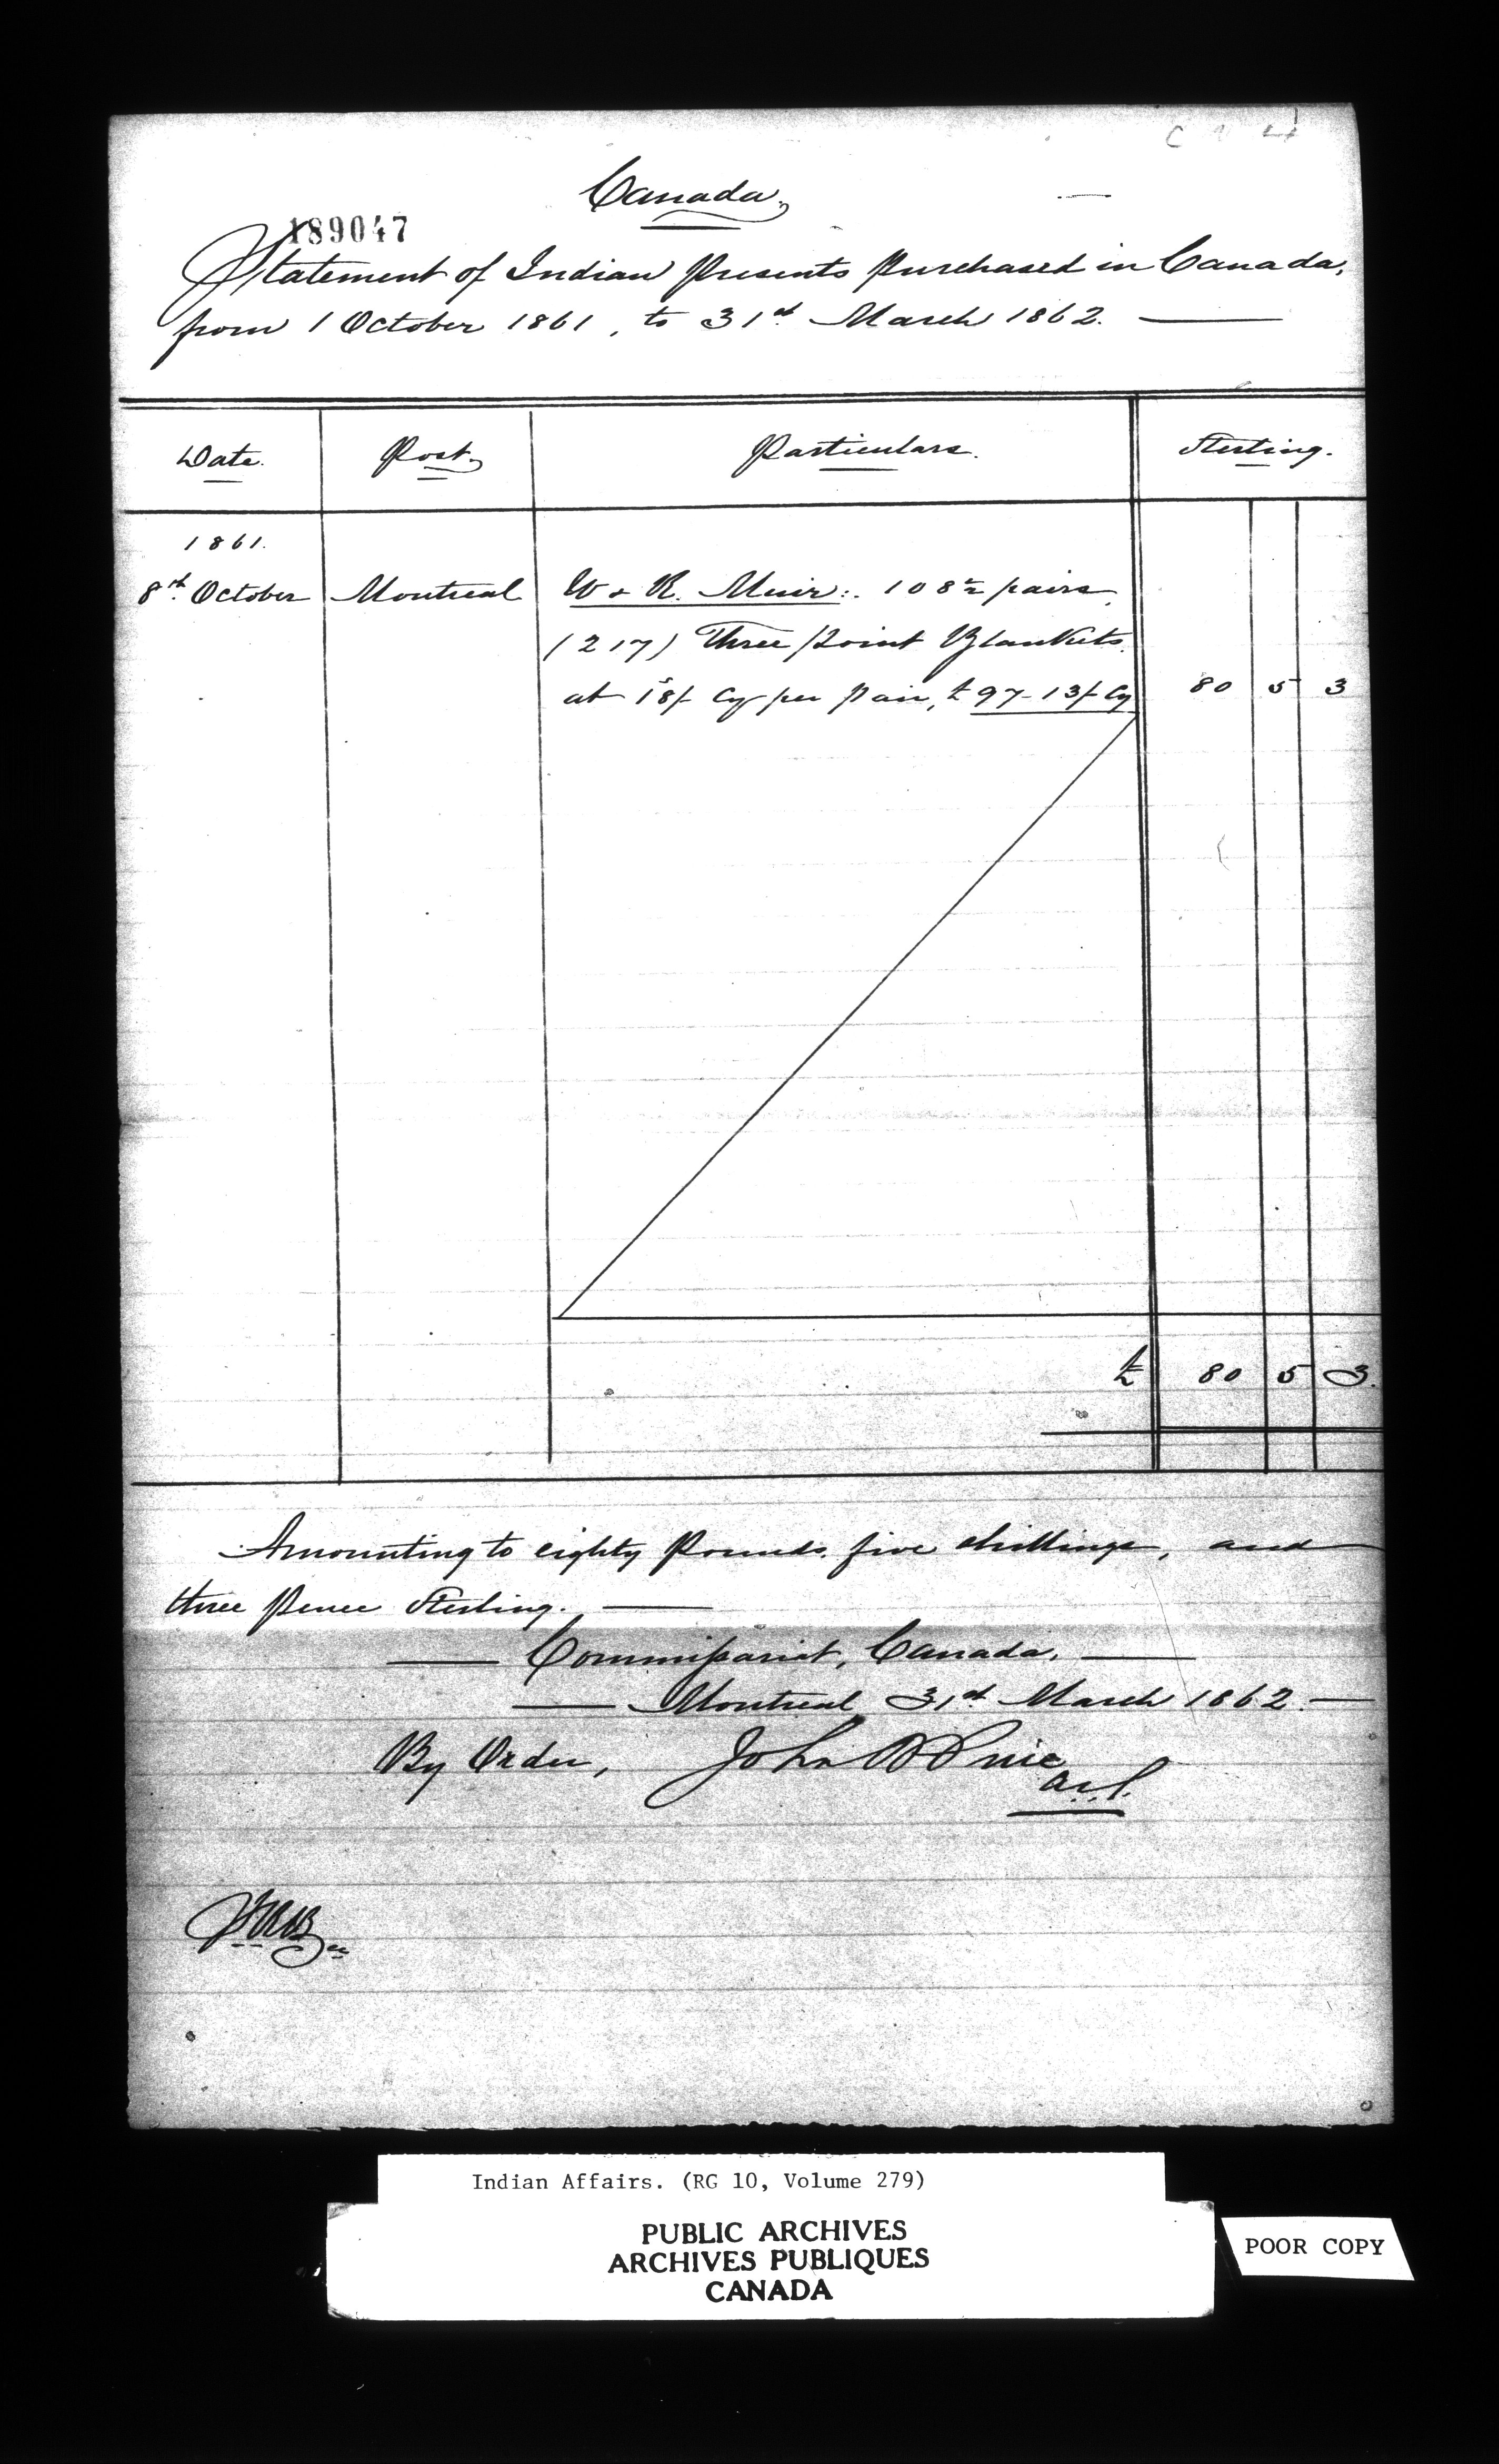 Canada.
189047
Statement of Indian Presents Purchased in Canada,
from 1 October 1861, to 31st March 1862.
Date. Post. Particulars. Sterling.
1861.
8th October Montreal W & R. Muir: 108½ pairs
(217) Three Point Blankets
at 18/- Cy per pair, £97-13/- Cy 80 5 3
£ 80 5 3.
Amounting to eighty Pounds, five shillings, and
three Pence Sterling.
Commissariat, Canada.
Montreal 31st March 1862.
By Order, John
Indian Affairs. (RG 10, Volume 279)
PUBLIC ARCHIVES
ARCHIVES PUBLIQUES
CANADA
POOR COPY